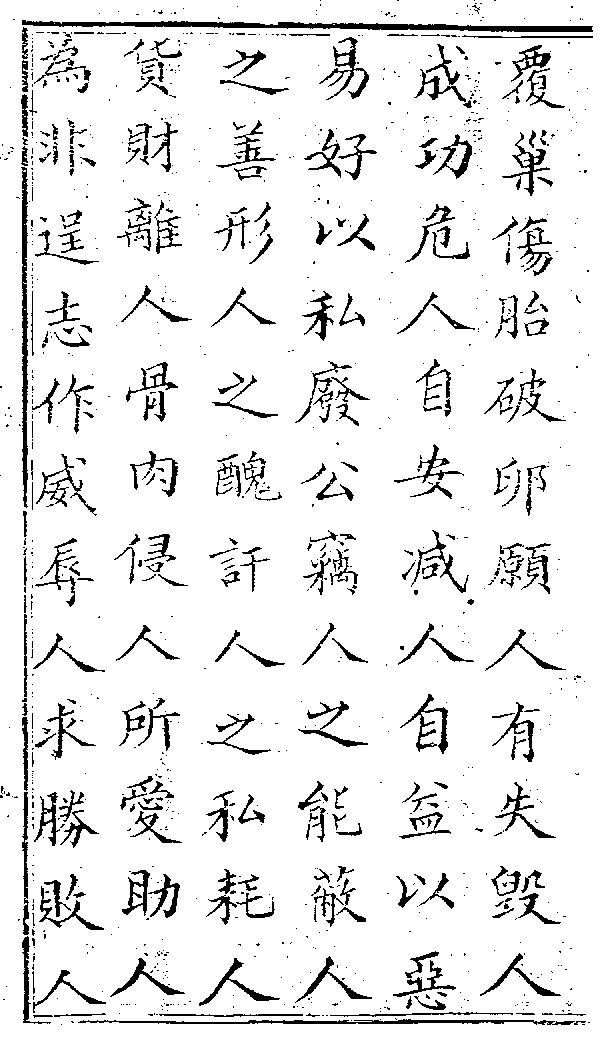 覆巢傷胎破卵願人有失毀人
成功危人自安减人自益以惡
易好以私廢公竊人之能蔽人
之善形人之醜訐人之私耗人
貨財離人骨肉侵人所愛助人
為非逞志作威辱人求勝敗人